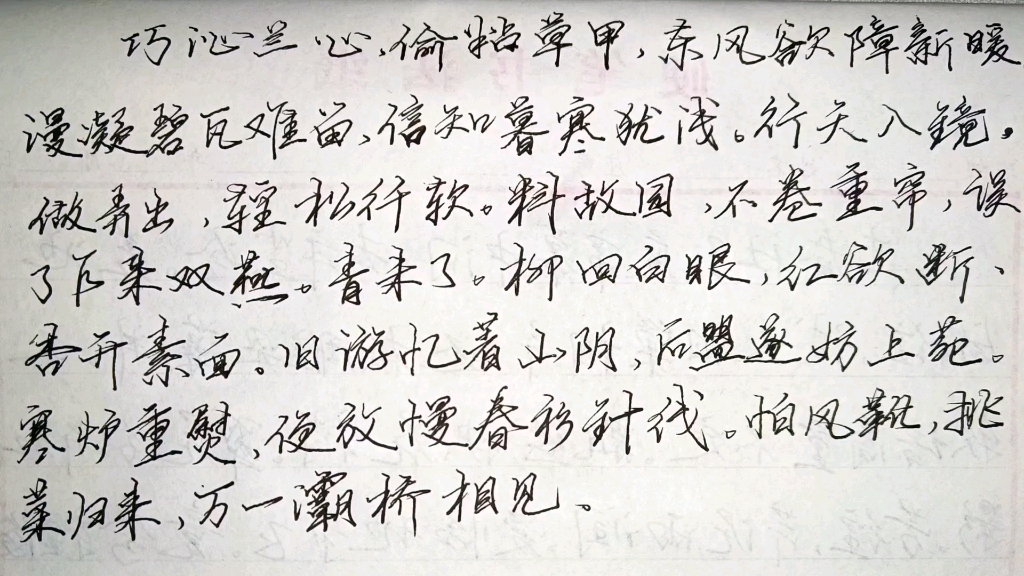 巧沁兰心，偷粘草甲，东风欲障新暖
漫凝碧瓦难留、信知暮寒犹浅。行天入镜，
做弄出，轻松纤软。料故园，不卷重帘，误
了乍来双燕。青来了。柳回白眼，红欲断、
杏开素面。旧游忆着山阴，后盟遂妨上苑。
寒炉重熨，便放慢春衫針线。怕风靴，挑
菜归来，万一灞桥相见。